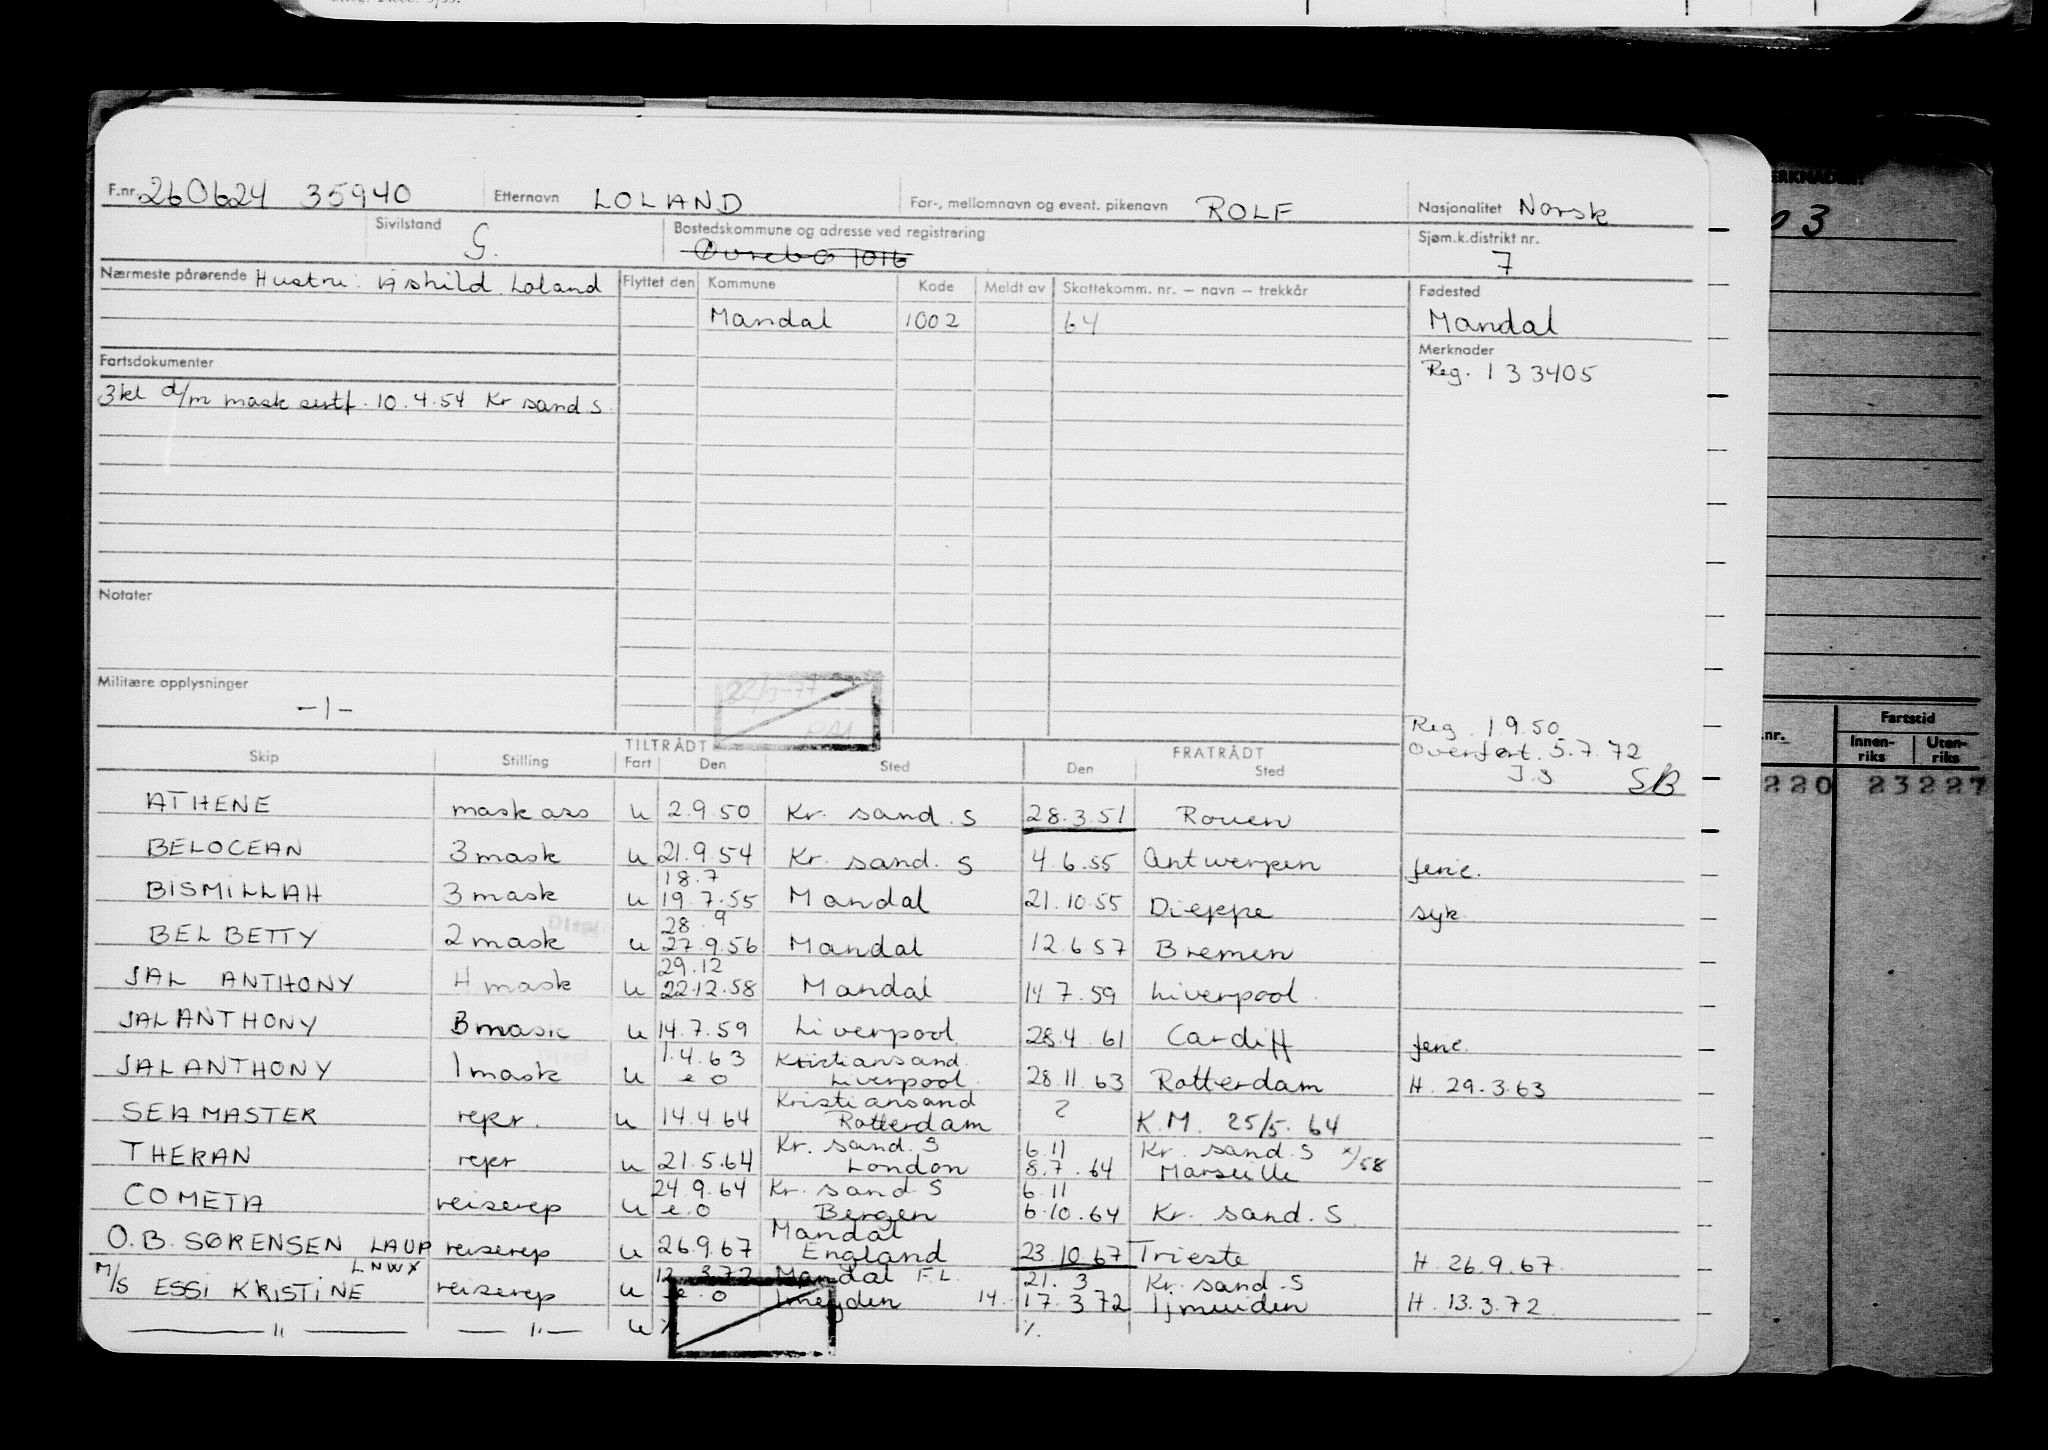 F.nr. 260624 35940 Etternavn LOLAND For-, mellomnavn og event. pikenavn ROLF Nasjonalitet Norsk
Sivilstand G. Bostedskommune og adresse ved registrering Øvrebø 1016 Sjøm.k.distrikt nr. 7
Nærmeste pårørende Hustru: Åshild Loland Flyttet den Kommune Kode Meldt av Skattekomm. nr. – navn – trekkår Fødested
Mandal 1002 64 Mandal
Fartsdokumenter Merknader
Reg. 133405
3kl d/m mask sertf. 10.4.54 Kr sand S.
Notater
Militære opplysninger
-1-
Reg. 1.9.50
Overført. 5.7.72
SB
TILTRÅDT FRATRÅDT
Skip Stilling Fart Den Sted Den Sted
ATHENE mask ass u 2.9.50 Kr. sand. S 28.3.51 Rouen
BELOCEAN 3 mask u 21.9.54 Kr. sand. S 4.6.55 Antwerpen ferie.
18.7
BISMILLAH 3 mask u 19.7.55 Mandal 21.10.55 Dieppe syk
28.9
BELBETTY 2 mask u 27.9.56 Mandal 12.6 57 Bremen
29.12
JAL ANTHONY 4 mask u 22.12.58 Mandal 14 7.59 Liverpool
JALANTHONY 3 mask u 14.7.59 Liverpool 28.4.61 Cardiff ferie.
1.4.63 Kristiansand.
JALANTHONY 1 mask u e o Liverpool 28.11.63 Rotterdam H. 29.3.63
Kristiansand
SEAMASTER repr. u 14.4.64 Rotterdam ? K.M. 25/5.64
Kr. sand. S 6.11 Kr. sand. S
THERAN repr u 21.5.64 London 8.7.64 Marseille x/58
24.9.64 Kr. sand S 6.11
COMETA reiserep u e.o Bergen 6.10.64 Kr. sand. S
Mandal
O.B. SØRENSEN LAUP reiserep u 26.9.67 England 23.10.67 Trieste H. 26.9.67
LNWX 12.3.72 Mandal F.L. 21.3 Kr. sand. S
M/S ESSI KRISTINE reiserep u e.o Imeyden 14. 17.3 72 Ijmuiden H. 13.3.72
— " — — " — u
ERKNADER
03
nr. Fartstid
Innen-riks Uten-riks
220 23227